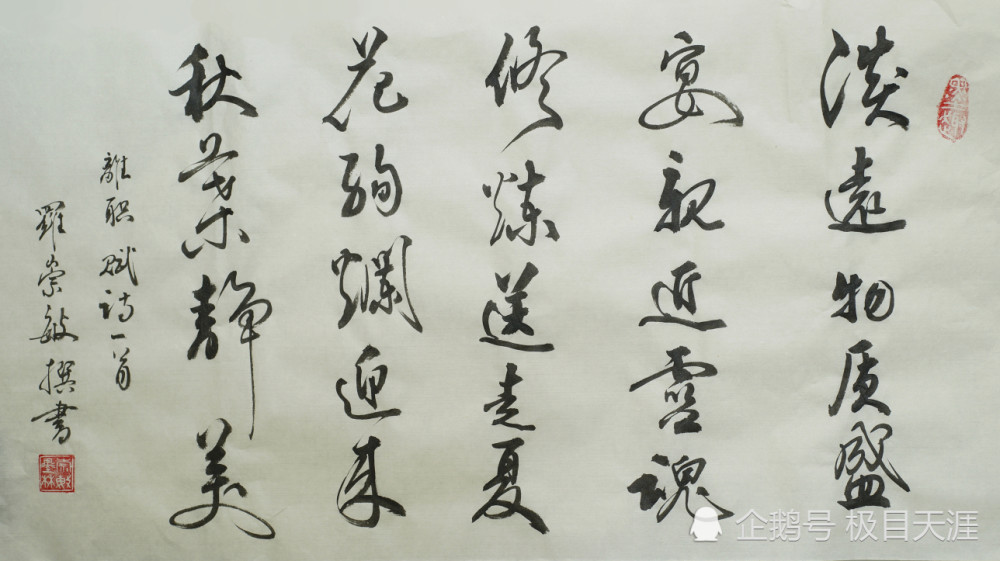 淡遠物质盛
宴親近靈魂
修炼送走夏
花绚爛迎来
秋葉静美
離职赋诗一首
羅崇敏撰書
企鹅号 极目天涯